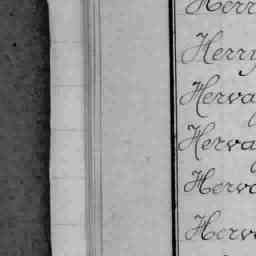 Herr
Herry
Herva
Herva
Herva
Herv